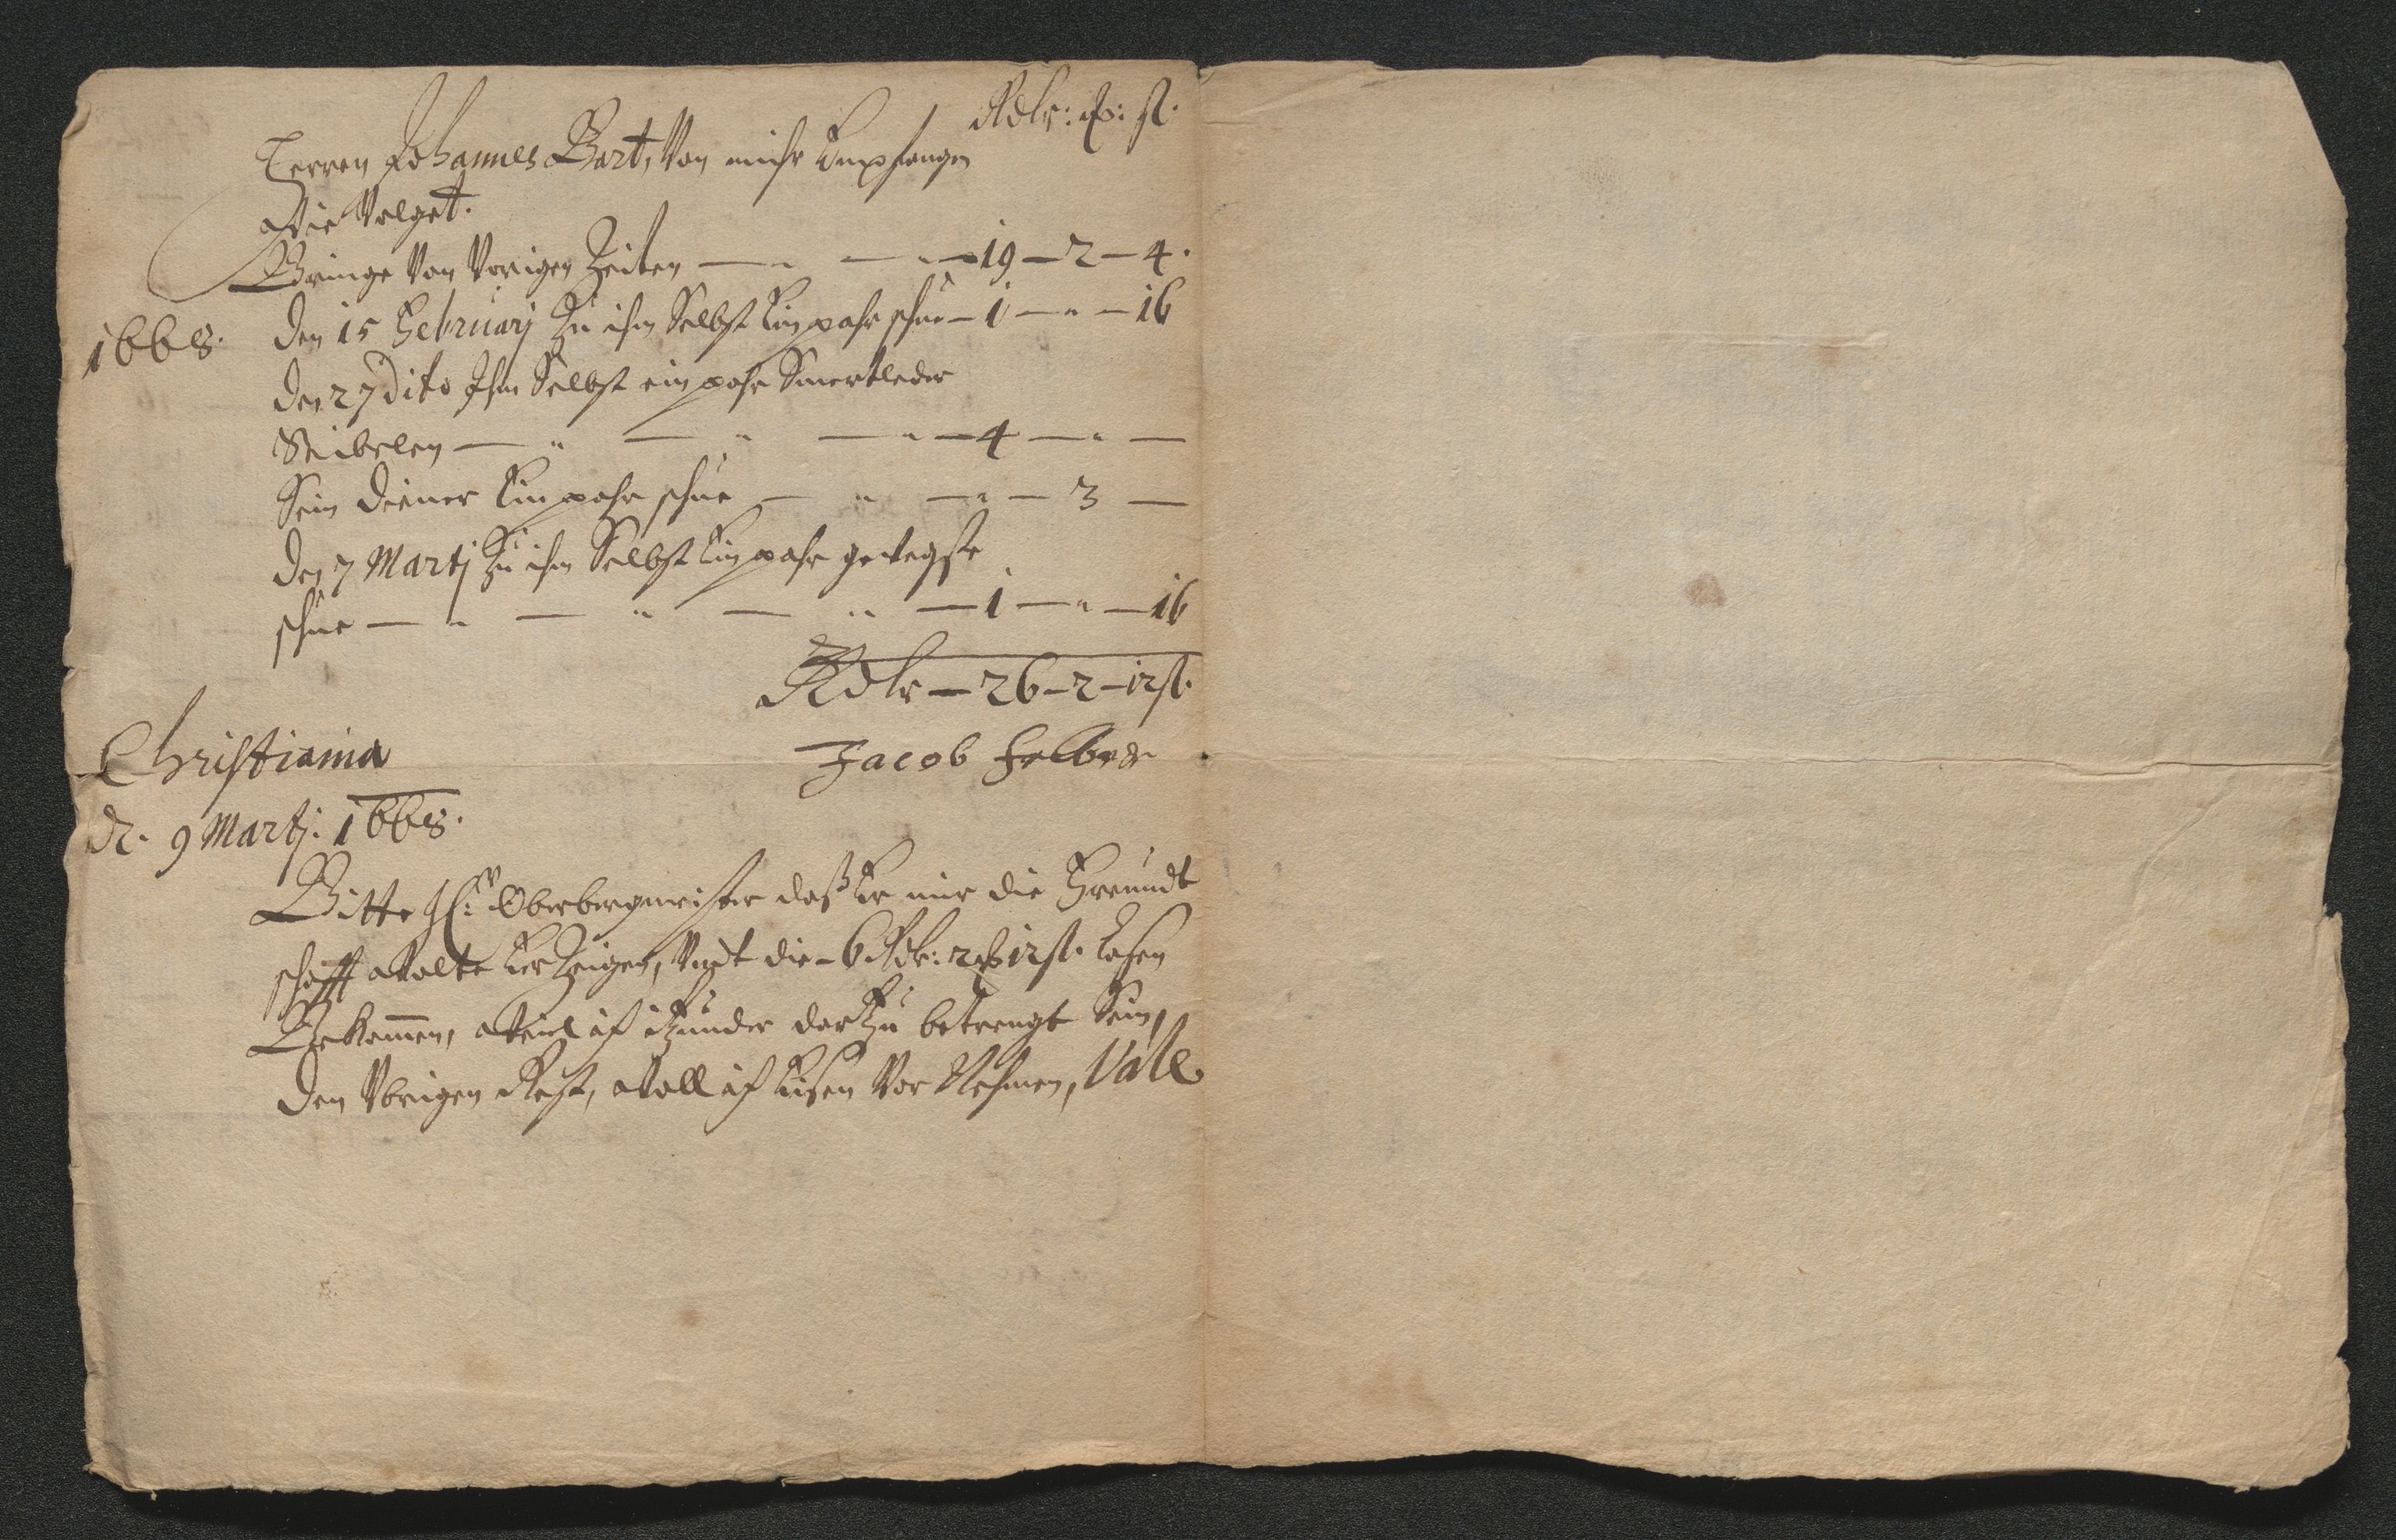 Rdlr: ₰: ß.
Herren Johannes Bart, Von mihr Empfangen
Wie Volget.
Bringe Von Vorigen Zeiten — 19 — 2 — 4.
1668. Den 15 Februarj Zu ihm Selbst Ein pahr schue — 1 — " — 16
Den 27 Dito Ihm Selbst ein pahr Smertleder
Stibelen — " — " — " — 4 — " —
Sein Diener Ein pahr schue — " — " — 3 —
Den 7 Martj Zu ihm Selbst Ein pahr
schue — " — " — " — 1 — " — 16
Rdlr — 26 – 2 – 12 ß.
Christiania
Jacob Felber
d. 9 Martj. 1668.
Bitte H: Oberbergmeister daß Er mir die Freundt
schafft Wolte Erzeigen, Vndt die – 6 Rdlr: 2 ₰ 12 ß. Lasen
Bekommen, Weil ich itzunder dar Zu betrengt Sein,
Den Vbrigen Rest, Woll ich Eisen Vor Nehmen, Vale